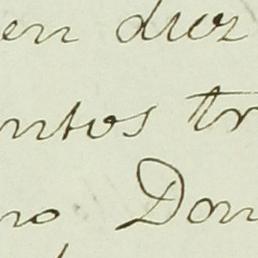 en diez
ntos tr
no, Don